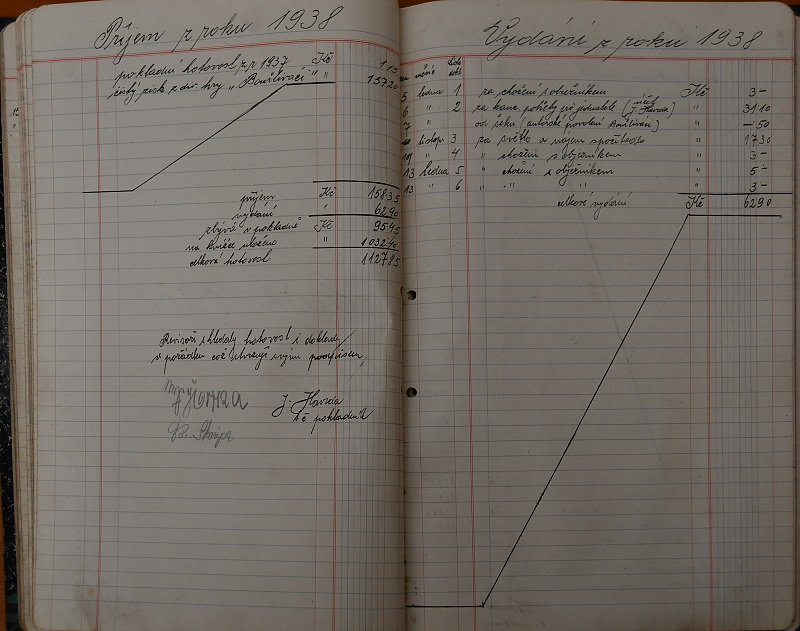 Příjem z roku 1938
pokladní hotovost z r 1937 Kč 115
čistý zisk z div. hry „Bouřliváci" " 15720
příjem Kč 15835
vydání " 6290
zbývá v pokladně Kč 9545
na knížce uloženo " 103240
celková hotovost 112785
Revisoři shledaly hotovost i doklady
v pořádku což stvrzují svojim podpisem
J. Havrda
t.č pokladník
Vydání z roku 1938
5 ledna 1 za chození s oběžníkem Kč 3-
6 " 2 za kanc. potřeby pro jednatele (účet J. Havrda) " 3110
7 " (autorské povolení Bouřliváci) " -50
listop 3 za světlo a nájem " 1730
" 4 " chození s oběžníkem " 3-
13 ledna 5 " chození s oběžníkem " 5-
13 " 6 " " " " 3-
celkové vydání Kč 6290